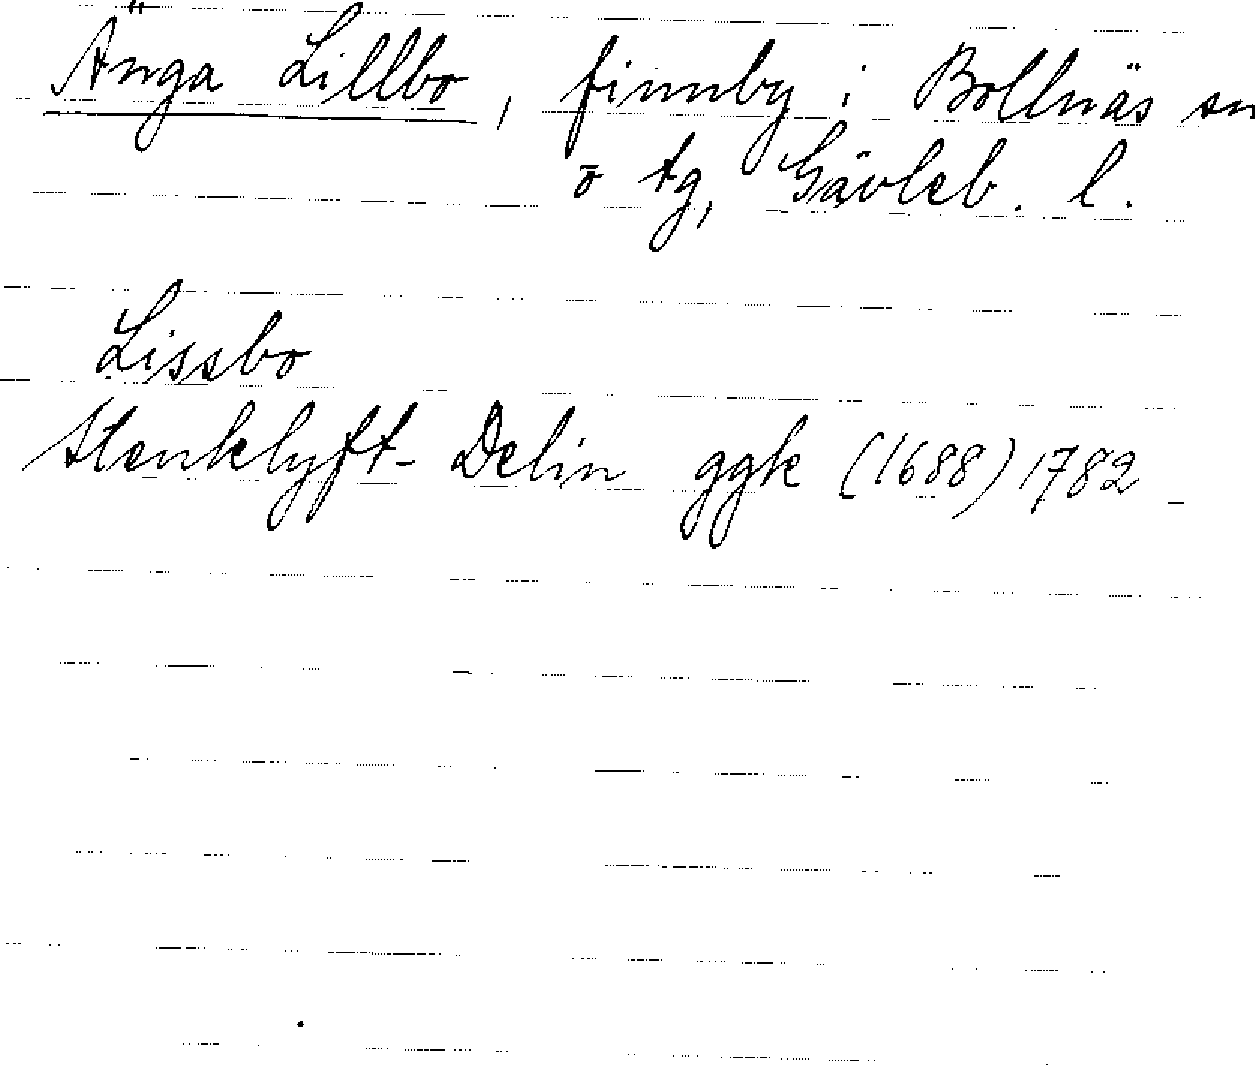 Änga Lillbo, finnby i Bollnäs sn
o tg, Gävleb. l.
Lissbo
Stenklyft- Delin ggk (1688) 1782